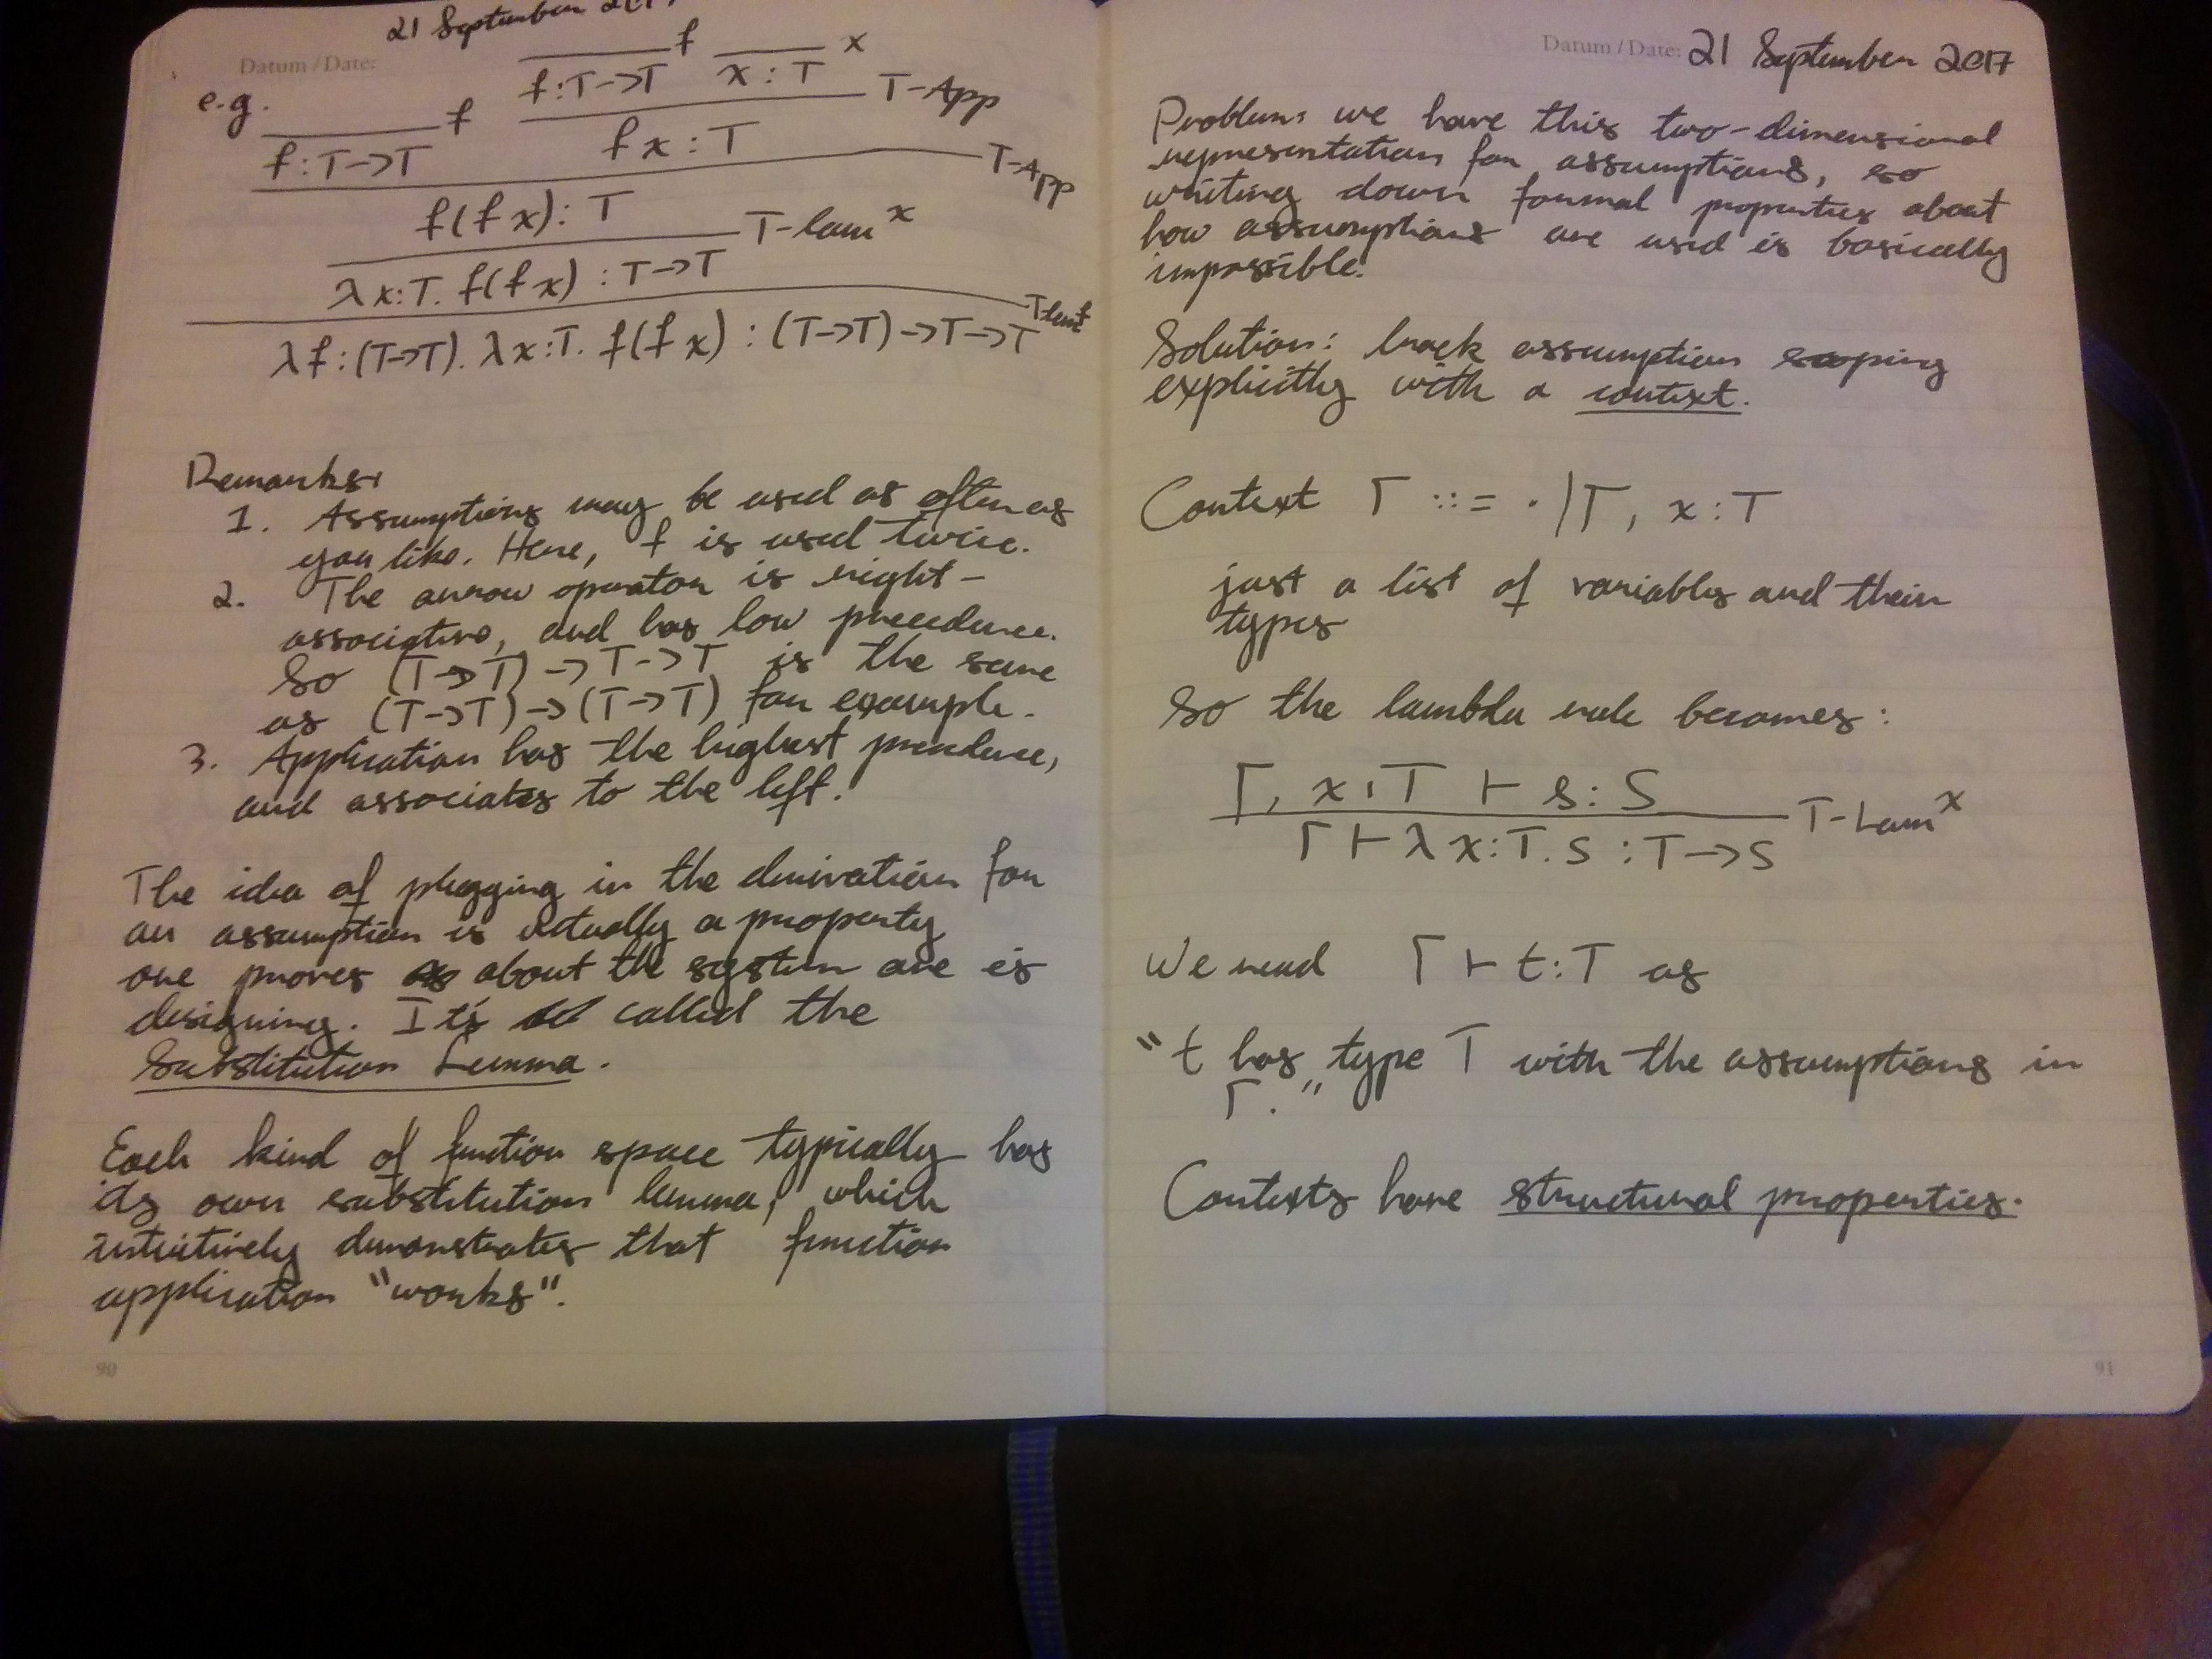 21 September 2017
Datum / Date:
f x
e.g. f : T->T x : T T-App
f
f : T->T f x : T T-App
f(f x) : T T-lam x
λx:T. f(f x) : T->T T-lam f
λf:(T->T). λx:T. f(f x) : (T->T)->T->T
Remarks:
1. Assumptions may be used as often as
you like. Here, f is used twice.
2. The arrow operator is right-
associative, and has low precedence.
So (T->T)->T->T is the same
as (T->T)->(T->T) for example.
3. Application has the highest precedence,
and associates to the left.
The idea of plugging in the derivation for
an assumption is actually a property
one proves about the system one is
designing. It's called the
Substitution Lemma.
Each kind of function space typically has
its own substitution lemma, which
intuitively demonstrates that function
application "works".
90
Datum / Date: 21 September 2017
Problem: we have this two-dimensional
representation for assumptions, so
writing down formal properties about
how assumptions are used is basically
impossible!
Solution: track assumption scoping
explicitly with a context.
Context Γ ::= · | Γ, x : T
just a list of variables and their
types
So the lambda rule becomes:
Γ, x:T ⊢ s : S
T-Lam x
Γ ⊢ λx:T. s : T->S
We read Γ ⊢ t:T as
"t has type T with the assumptions in
Γ."
Contexts have structural properties.
91